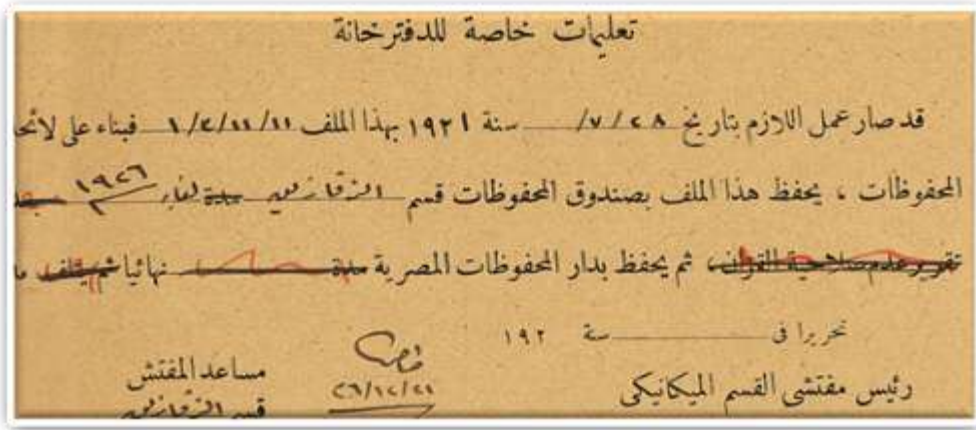 تعليمات خاصة للدفترخانة
قد صار عمل اللازم بتاريخ ٢٨/٧/ سنة ١٩٢١ بهذا الملف ١/٢/١١/١١ فبناء على لائحة
المحفوظات ، يحفظ هذا الملف بصندوق المحفوظات قسم الزقازيق مدة لغاية ١٩٢٦
تقرير عدم صلاحية القزان ثم يحفظ بدار المحفوظات المصرية مدة نهائيا ثم يتلف
تحريرا في سنة ١٩٢
رئيس مفتشى القسم الميكانيكى
٢٦/١٢/٢١
مساعد المفتش
قسم الزقازيق